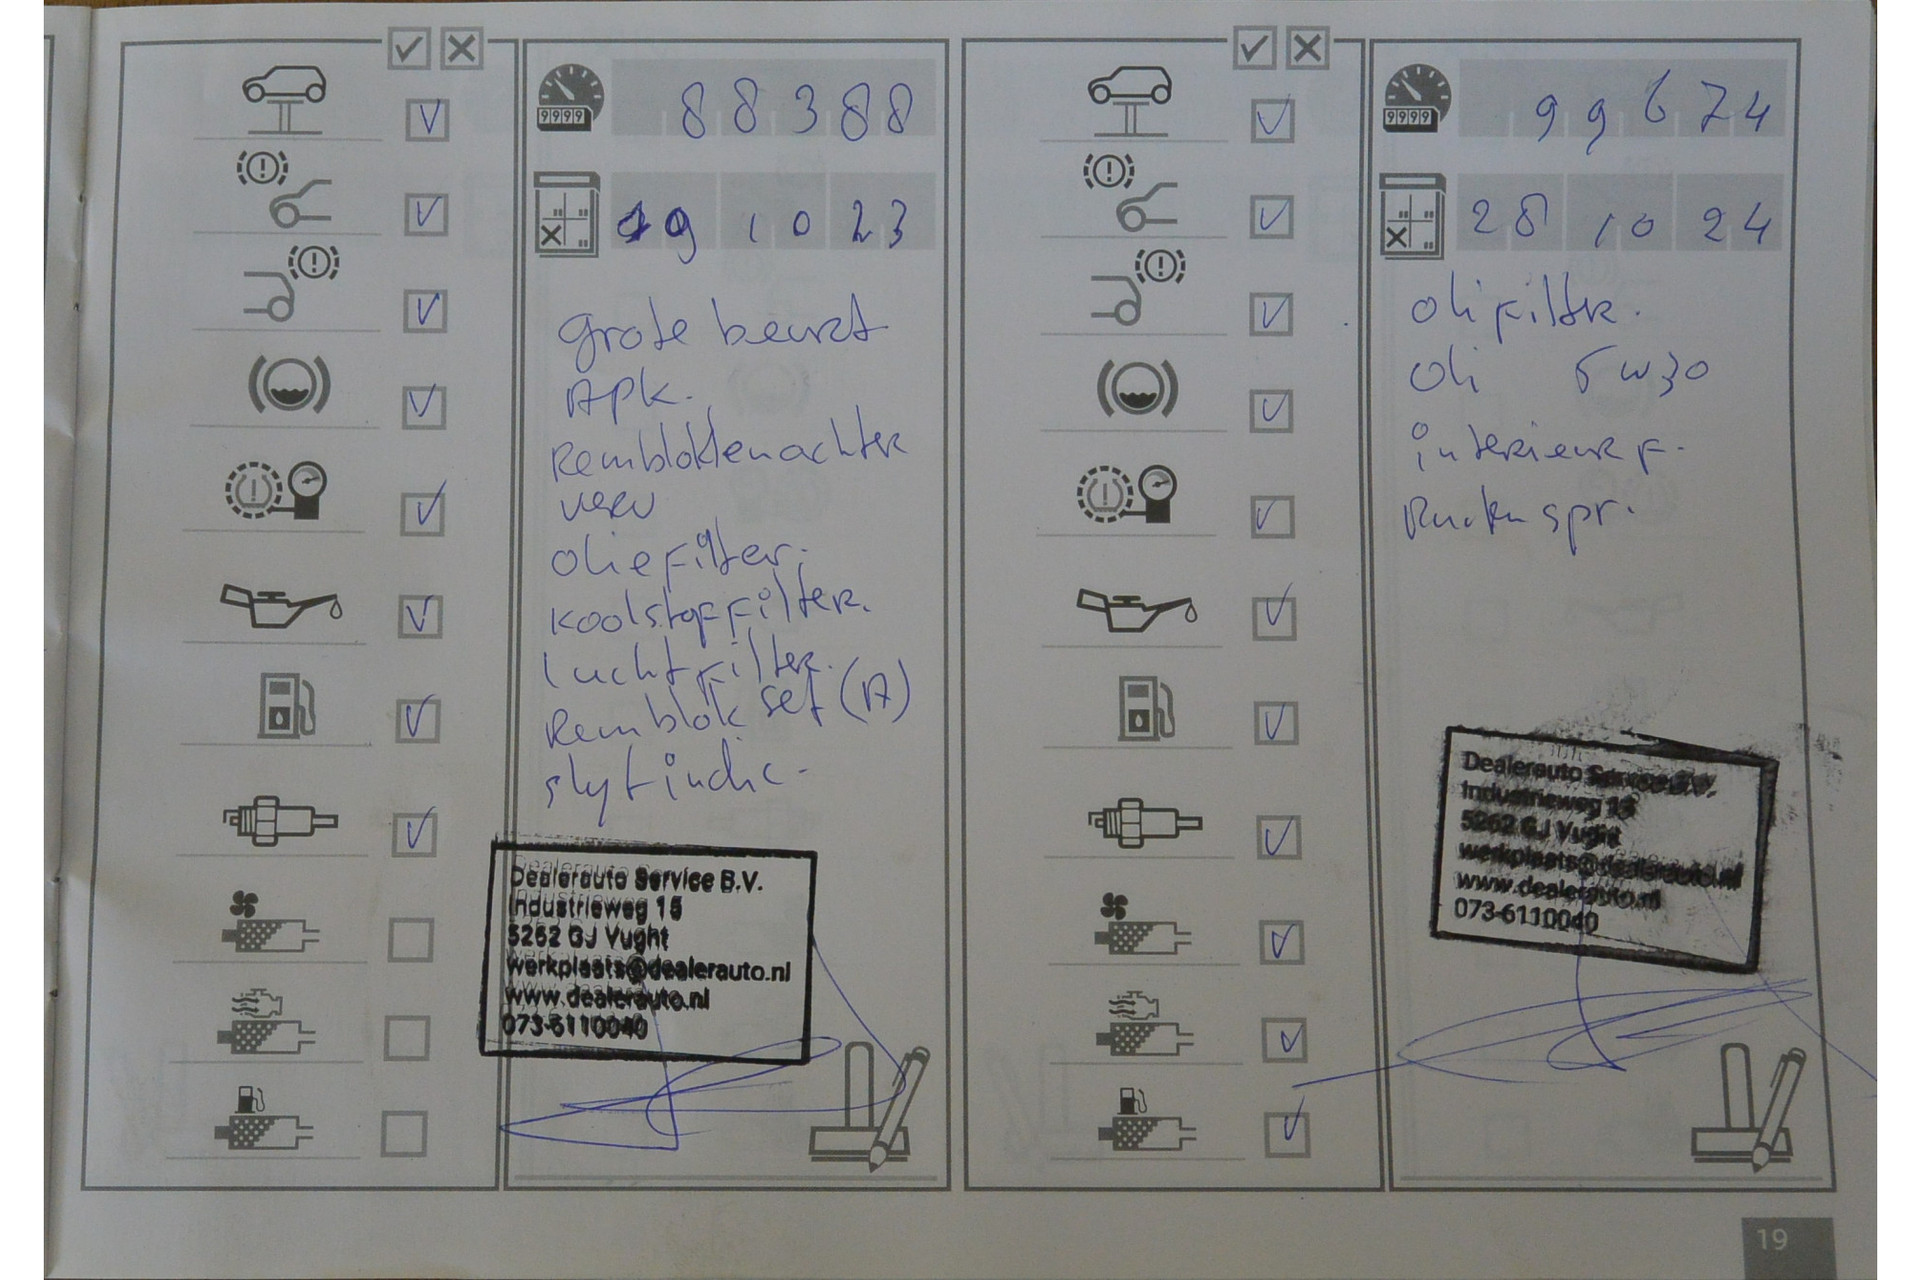 88388
19 10 23
grote beurt
APK.
Remblokken achter
verv
oliefilter.
koolstoffilter.
luchtfilter.
Remblok set (A)
slyt indic.
Dealerauto Service B.V.
Industrieweg 15
5262 GJ Vught
werkplaats@dealerauto.nl
www.dealerauto.nl
073-6110040
99674
28 10 24
oli filter.
oli 5W30
interieur F.
Ruiten spr.
Dealerauto Service B.V.
Industrieweg 15
5262 GJ Vught
werkplaats@dealerauto.nl
www.dealerauto.nl
073-6110040
19